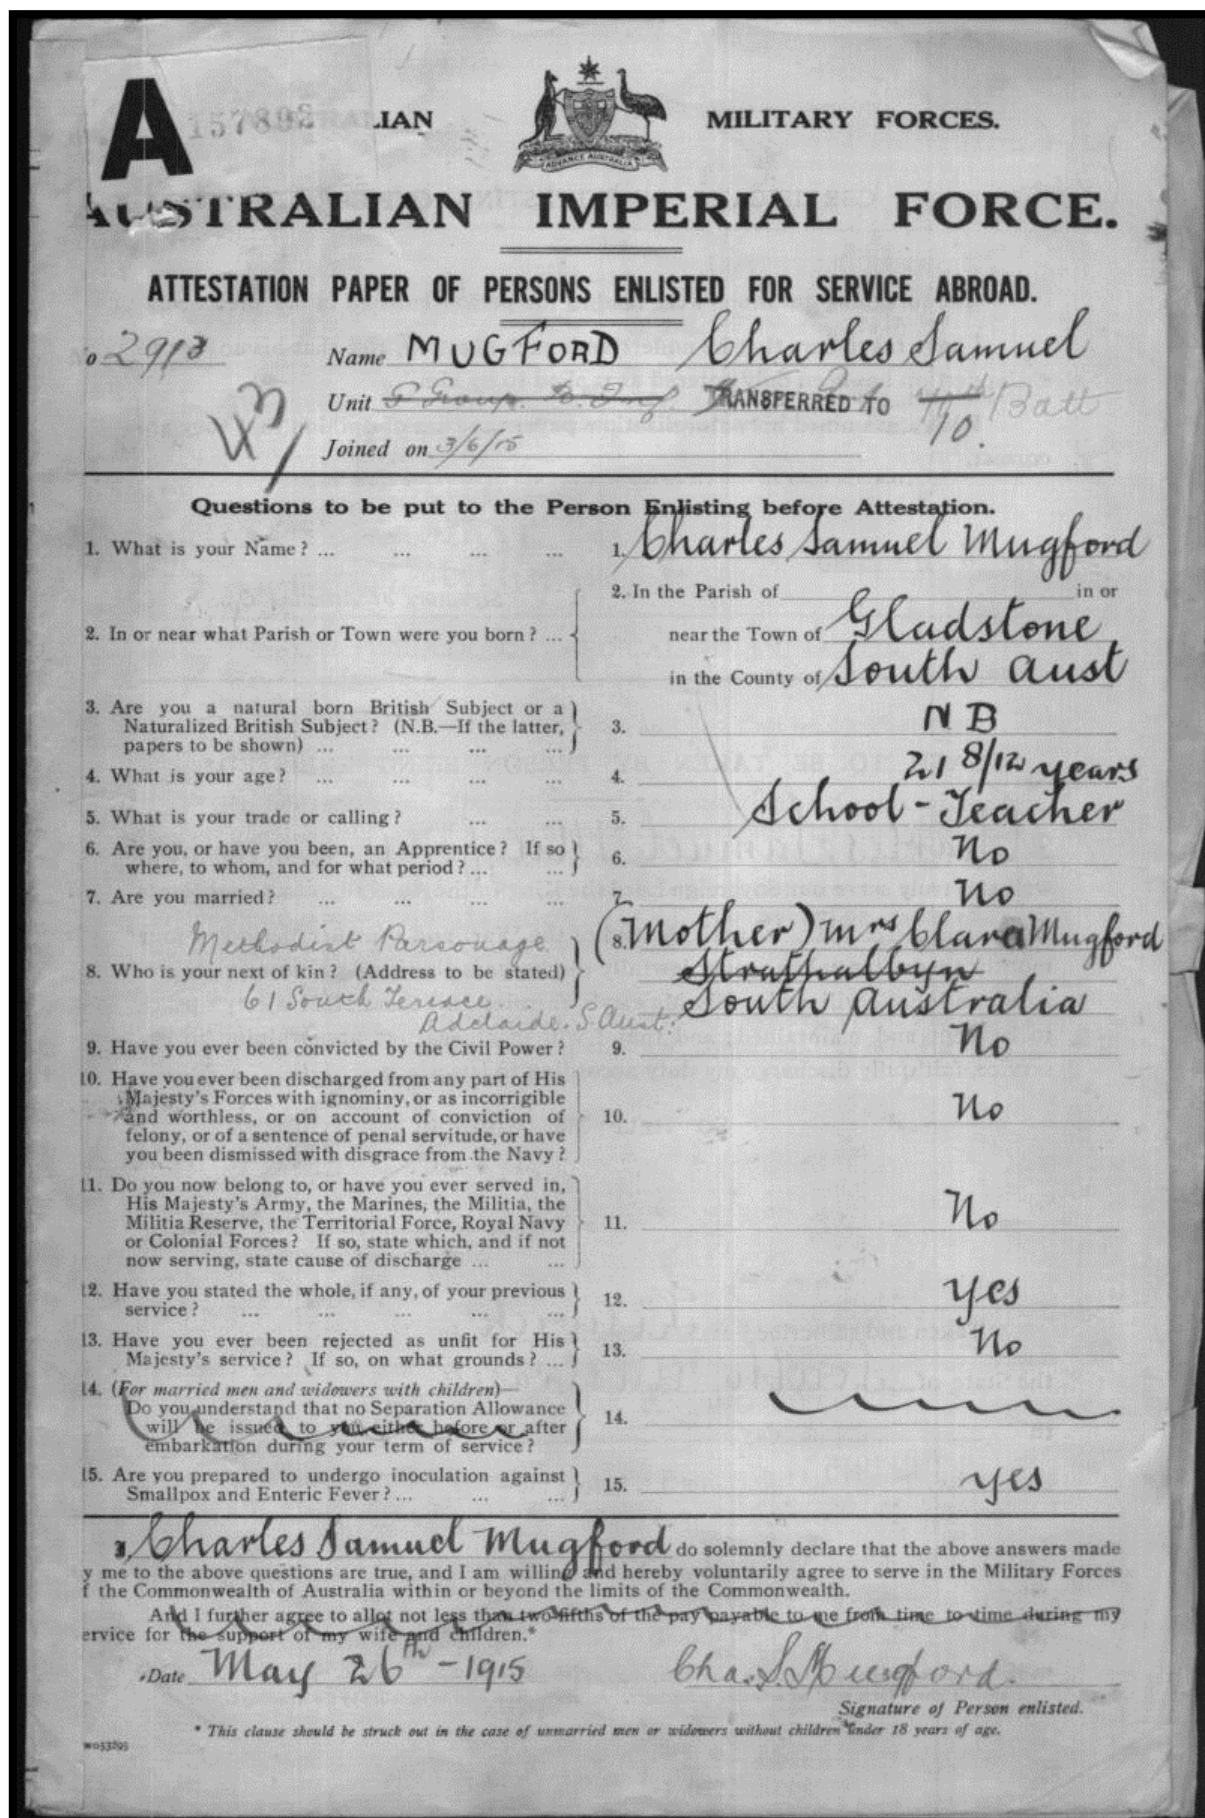 A 157893 LIAN MILITARY FORCES.
ADVANCE AUSTRALIA
AUSTRALIAN IMPERIAL FORCE.
ATTESTATION PAPER OF PERSONS ENLISTED FOR SERVICE ABROAD.
o 2913 Name MUGFORD Charles Samuel
Unit TRANSFERRED TO 10. Batt
Joined on 3/6/15
Questions to be put to the Person Enlisting before Attestation.
1. What is your Name? ... ... ... ... 1. Charles Samuel Mugford
2. In the Parish of in or
2. In or near what Parish or Town were you born? ... near the Town of Gladstone
in the County of South Aust
3. Are you a natural born British Subject or a
Naturalized British Subject? (N.B.—If the latter, 3. N B
papers to be shown) ... ... ... ...
4. What is your age? ... ... ... ... 4. 21 8/12 years
5. What is your trade or calling? ... ... 5. School-Teacher
6. Are you, or have you been, an Apprentice? If so
where, to whom, and for what period?... ... 6. No
7. Are you married? ... ... ... ... 7. No
Methodist Parsonage 8. (Mother) Mrs Clara Mugford
8. Who is your next of kin? (Address to be stated) Strathalbyn
61 South Terrace South Australia
Adelaide. S Aust.
9. Have you ever been convicted by the Civil Power? 9. No
10. Have you ever been discharged from any part of His
Majesty's Forces with ignominy, or as incorrigible
and worthless, or on account of conviction of 10. No
felony, or of a sentence of penal servitude, or have
you been dismissed with disgrace from the Navy?
11. Do you now belong to, or have you ever served in,
His Majesty's Army, the Marines, the Militia, the
Militia Reserve, the Territorial Force, Royal Navy 11. No
or Colonial Forces? If so, state which, and if not
now serving, state cause of discharge ... ...
12. Have you stated the whole, if any, of your previous
service? ... ... ... ... ... 12. yes
13. Have you ever been rejected as unfit for His
Majesty's service? If so, on what grounds? ... 13. No
14. (For married men and widowers with children)—
Do you understand that no Separation Allowance
will be issued to you either before or after 14.
embarkation during your term of service?
15. Are you prepared to undergo inoculation against
Smallpox and Enteric Fever?... ... ... 15. yes
I, Charles Samuel Mugford do solemnly declare that the above answers made
y me to the above questions are true, and I am willing and hereby voluntarily agree to serve in the Military Forces
f the Commonwealth of Australia within or beyond the limits of the Commonwealth.
And I further agree to allot not less than two-fifths of the pay payable to me from time to time during my
ervice for the support of my wife and children.*
Date May 26th - 1915 Cha. S. Mugford.
Signature of Person enlisted.
* This clause should be struck out in the case of unmarried men or widowers without children under 18 years of age.
W053295